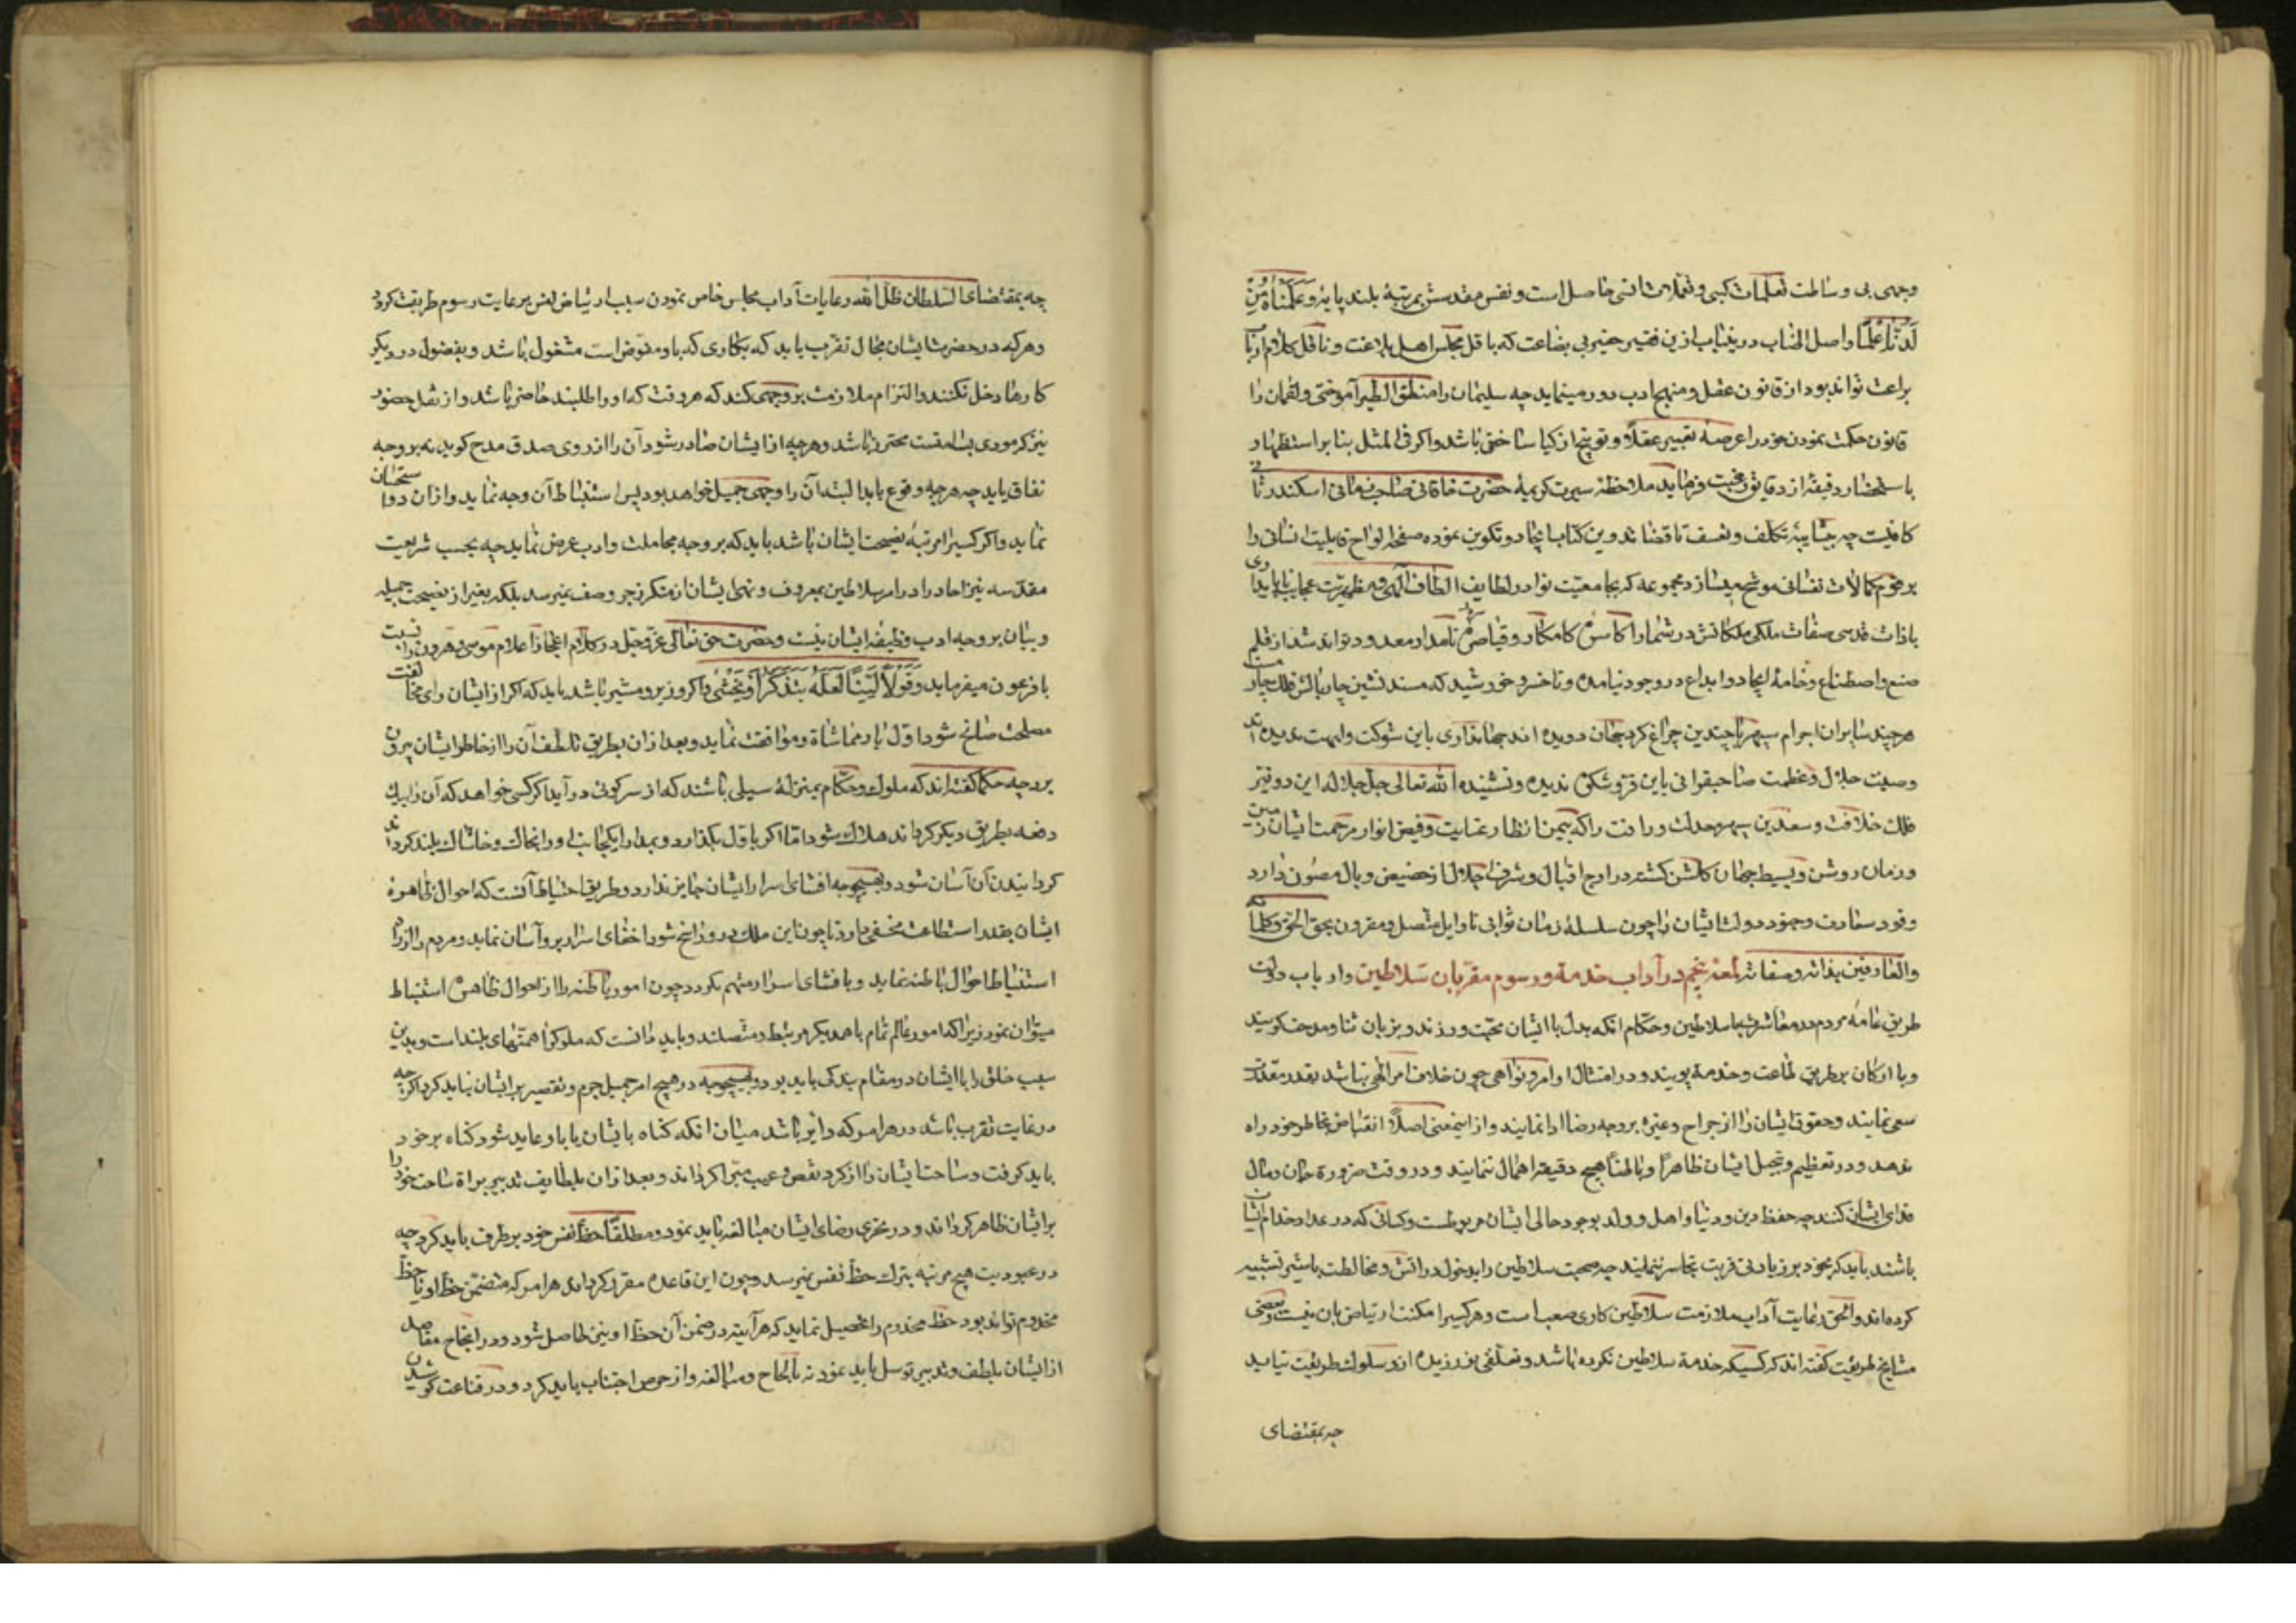 وحی بی وساطت تعلمات کسبی و تعملات انسی حاصل است و نفس مقدسش بمرتبهٔ بلند پایهٔ وَعَلَّمْنَاهُ مِنْ
لَدُنَّا عِلْمًا واصل اطناب درینباب ازین فقیر حقیر بی بضاعت که باقل مجلس اهل بلاغت و ناقل کلام ارباب
براعت تواند بود از قانون عقل و منهج ادب دور مینماید چه سلیمان را منطق الطیر آموختن و لقمان را
قانون حکمت نمودن خود را عرضهٔ تعییر عقلا و توبیخ ازکیا ساختن باشد و اگر فی المثل بنابر استظهار
باستحضار دقیقهٔ از دقایق رغبت فرماید ملاحظهٔ سیرت کریمهٔ حضرت خاقانی صاحب قرانی اسکندر ثانی
کافیست چه بیشایبهٔ تکلف و تعسف تا قضا تدوین کتاب ایجاد و تکوین نموده صفحهٔ الواح قابلیت انسانی را
برقوم کمالات نفسانی موشح میسازد مجموعه که بجامعیت نوادر لطایف الطاف الهی و مظهریت عجایب ایادی
با ذات قدسی صفات ملکی ملکاتش در شمار اکاسرهٔ کامکار و قیاصرهٔ نامدار معدود تواند شد از قلم
صنع واصطناع و خامهٔ ایجاد و ابداع در وجود نیامده و تا خسرو خورشید که مسند نشین چار بالش فلک چهارمست
هر چند با پیران اجرام سپهر با چندین چراغ گرد جهان دویده اند جهانداری باین شوکت و ابهت ندیده اند
وصیت جلال و عظمت صاحبقرانی باین فر و شکوه ندیده و نشنیده الله تعالی جل جلاله این دو نیر
فلک خلافت و سعدین سپهر معدلت و رافت را که بیمن انظار عنایت و فیض انوار مرحمت ایشان زمین
و زمان روشن و بسیط جهان گلشن گشته در اوج اقبال و شرف اجلال از حضیض وبال مصون دارد
وقود سعادت و جنود دولت ایشان را چون سلسلهٔ زمان ثوانی تا اوایل متصل و مقرون بحق الحق و کلماته
والعارفین بذاته و صفاته لمعهٔ پنجم در آداب خدمة و رسوم مقربان سلاطین و ارباب دولت
طریق عامهٔ مردم در معاشرت با سلاطین و حکام انکه بدل با ایشان محبت ورزند و بزبان ثنا و مدحت کویند
و با ارکان بر طریق طاعت و خدمة پویند و در امتثال اوامر و نواهی چون خلاف امر الهی نباشد بقدر مقدرت
سعی نمایند و حقوق ایشان را از خراج و غیره بر وجه رضا ادا نمایند و از اینمعنی اصلا انقباض بخاطر خود راه
ندهند و در تعظیم و تبجیل ایشان ظاهرا و باطنا هیچ دقیقه اهمال ننمایند و در وقت ضرورة جان و مال
فدای ایشان کنند چه حفظ دین و دنیا و اهل و ولد بوجود حالی ایشان مربوطست و کسانی که در عداد خدام ایشان
باشند باید که بخود بر زیادتی قربت تجاسر ننمایند چه صحبت سلاطین را بدخول در اتش و مخالطت با شیر تشبیه
کرده اند و الحق رعایت آداب ملازمت سلاطین کاری صعب است و هر کسیرا مکنت ارتیاض بان نیست و بعضی
مشایخ طریقت گفته اند که کسیکه خدمة سلاطین نکرده باشد و تعلقی نورزیده ازو سلوک طریقت نیاید
چه بمقتضای
چه بمقتضای السلطان ظل الله رعایات آداب مجلس خاص نمودن سبب ارتیاض نفس بر عایت رسوم طریقت گردد
و هر که در حضرت ایشان مجال تقرب یابد که بکاری که باو مفوض است مشغول باشد و بفضول در دیگر
کارها دخل نکند و التزام ملازمت بر وجهی کند که هر وقت که او را طلبند حاضر باشد و از ثقل حضور
نیز که مودی بسامتست محترز باشد و هر چه از ایشان صادر شود آن را از روی صدق مدح کوید نه بر وجه
نفاق باید چه هر چه وقوع یابد البته آن را وجهی جمیل خواهد بود پس استنباط آن وجه نماید و از ان رو استحسان
نماید و اگر کسیرا مرتبهٔ نصیحت ایشان باشد باید که بر وجه مجاملت و ادب عرض نماید چه بحسب شریعت
مقدسه نیز احاد را در امر سلاطین بمعروف و نهی ایشان از منکر زجر وصف نمیرسد بلکه بغیر از نصیحت جمیله
و بیان بر وجه ادب وظیفهٔ ایشان نیست و حضرت حق تعالی عز و جل در کلام اعجاز اعلام موسی و هرون را نسبت
با فرعون میفرماید وَقُولَا لَهُ قَوْلًا لَيِّنًا لَعَلَّهُ يَتَذَكَّرُ أَوْ يَخْشَى و اگر وزیر و مشیر باشد باید که اگر از ایشان رای مخالفت
مصلحت سانح شود اول بار مماشاة و موافقت نماید و بعد از ان بطریق تلطف آن را از خاطر ایشان بیرون
برد چه حکما گفته اند که ملوک و حکام بمنزلهٔ سیلی باشند که از سر کوهی در آید اگر کسی خواهد که آن را بیک
دفعه بطریق دیگر گرداند هلاک شود اما اگر باول بگذارد و بمدارا یکجانب او را بخاک و خاشاک بلند گرداند
گردانیدن آن آسان شود و بهیچوجه افشای اسرار ایشان جایز ندارد و طریق احتیاط آنست که احوال ظاهرهٔ
ایشان بقدر استطاعت مخفی دارد تا چون این ملکه درو راسخ شود اخفای اسرار برو آسان نماید و مردم را از راه
استنباط احوال باطنه نماید و بافشای اسرار متهم نگردد چون امور باطنه را از احوال ظاهره استنباط
میتوان نمود زیرا که امور عالم تمام باهمدیگر مرتبط و متصلند و باید دانست که ملوک را همتهای بلند است و بدین
سبب خلق را با ایشان در مقام بندگی باید بود و بهیچوجه در هیچ امر جمیل جرم و تقصیر بر ایشان نباید کرد اگر چه
در غایت تقرب باشد در هر امر که دایر باشد میان انکه گناه بایشان یا باو عاید شود گناه بر خود
باید گرفت و ساحت ایشان را از گرد نقص و عیب مبرا گرداند و بعد از ان بلطایف تدبیر براة ساحت خود را
بر ایشان ظاهر گرداند و در تحری رضای ایشان مبالغه باید نمود و مطلقا حظ نفس خود بر طرف باید کرد چه
در عبودیت هیچ مرتبه بترک حظ نفس نمیرسد و چون این قاعده مقرر گرداند هر امر که متضمن حظ او یا حظ
مخدوم تواند بود حظ مخدوم را تحصیل نماید که هر آینه در ضمن آن حظ او نیز حاصل شود و در انجاح مقاصد
از ایشان بلطف و تدبیر توسل باید نمود نه بالحاح و مبالغه و از حرص اجتناب باید کرد و در قناعت کوشیدن